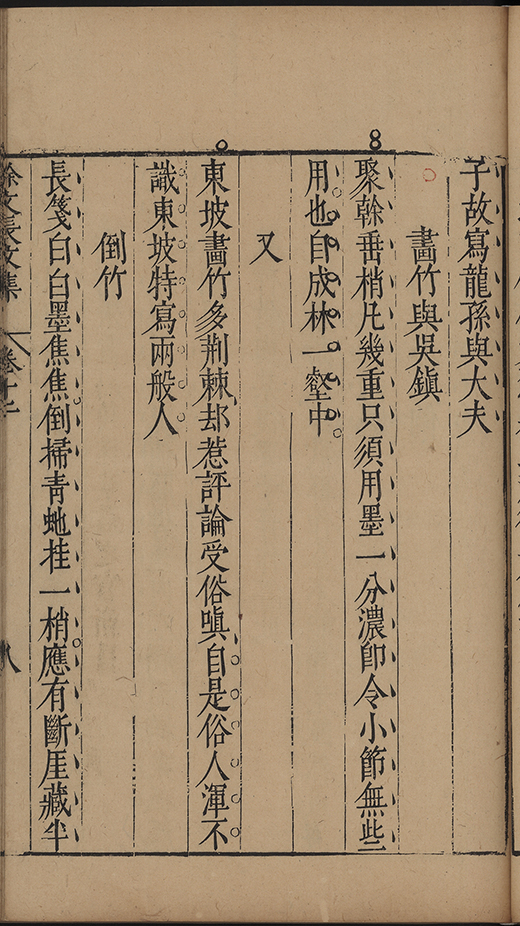 子故寫龍孫與大夫
畫竹與吳鎮
聚榦垂梢凡幾重只須用墨一分濃卽令小節無些
用也自成林一壑中
又
東坡畫竹多荆棘却惹評論受俗嗔自是俗人渾不
識東坡特寫兩般人
倒竹
長箋白白墨焦焦倒掃青虵挂一梢應有斷厓藏半
徐文長文集
卷十二
八